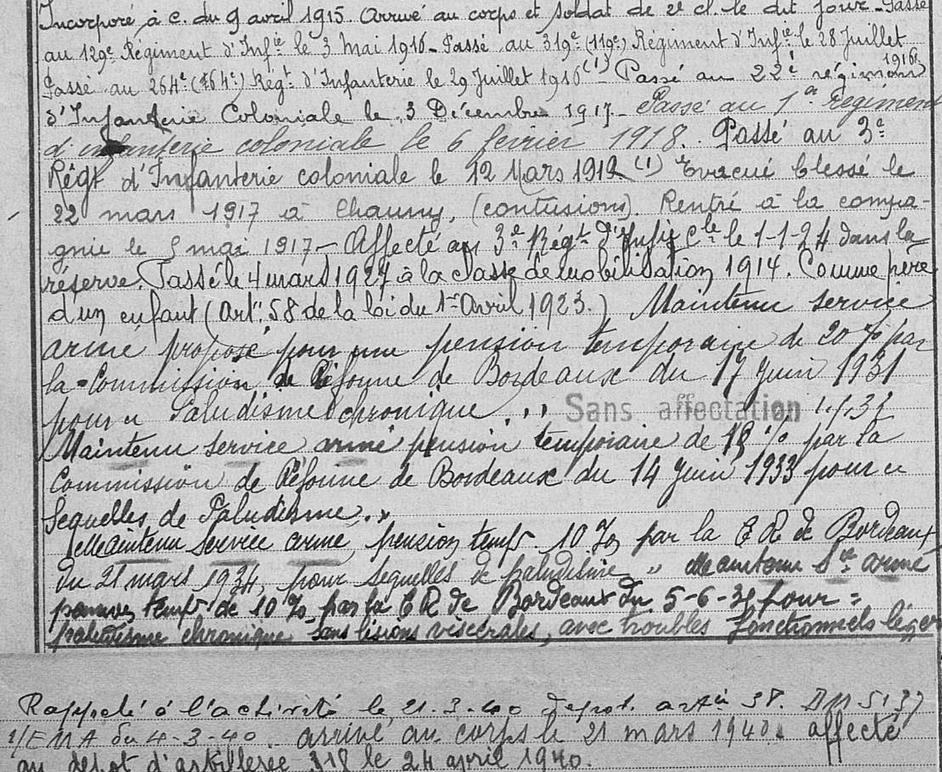 Incorporé à c. du 9 avril 1915. Arrivé au corps et soldat de 2e cl. le dit jour. Passé
au 129e Régiment d'Infie le 3 Mai 1916 - Passé au 319e (119e) Régiment d'Infie le 28 Juillet
Passé au 264e (64e) Régt d'Infanterie le 29 Juillet 1916 (1) Passé au 22e régiment 1916
d'Infanterie Coloniale le 3 Décembre 1917. Passé au 1er Régiment
d'infanterie coloniale le 6 février 1918. Passé au 3e
Régt d'Infanterie coloniale le 12 Mars 1919 (1) Evacué blessé le
22 mars 1917 à Chauny, (contusions). Rentré à la compa-
gnie le 5 mai 1917 - Affecté au 3e Régt d'Infie Cle le 1-1-24 dans la
réserve. Passé le 4 mars 1927 à la classe de mobilisation 1914. Comme père
d'un enfant (Art. 58 de la loi du 1er Avril 1923.) Maintenu service
armé proposé pour une pension temporaire de 20 % par
la Commission de Réforme de Bordeaux du 17 Juin 1931
pour " Paludisme chronique " Sans affectation
Maintenu service armé pension temporaire de % par la
Commission de Réforme de Bordeaux du 14 Juin 1933 pour "
Sequelles de Paludisme. "
Maintenu service armé, pension temp. 10 % par la C R de Bordeaux
du 21 mars 1934, pour sequelles de paludisme " Maintenu Sce armé
pension temp. de 10 % par la C R de Bordeaux du 5-6- pour =
paludisme chronique sans lésions viscérales, avec troubles fonctionnels léger
Rappelé à l'activité le 21-3-40 depot artie 38. DM 5137
1/EMA du 4-3-40. arrivé au corps le 21 mars 1940. affecté
au dépot d'artillerie 318 le 24 april 1940.